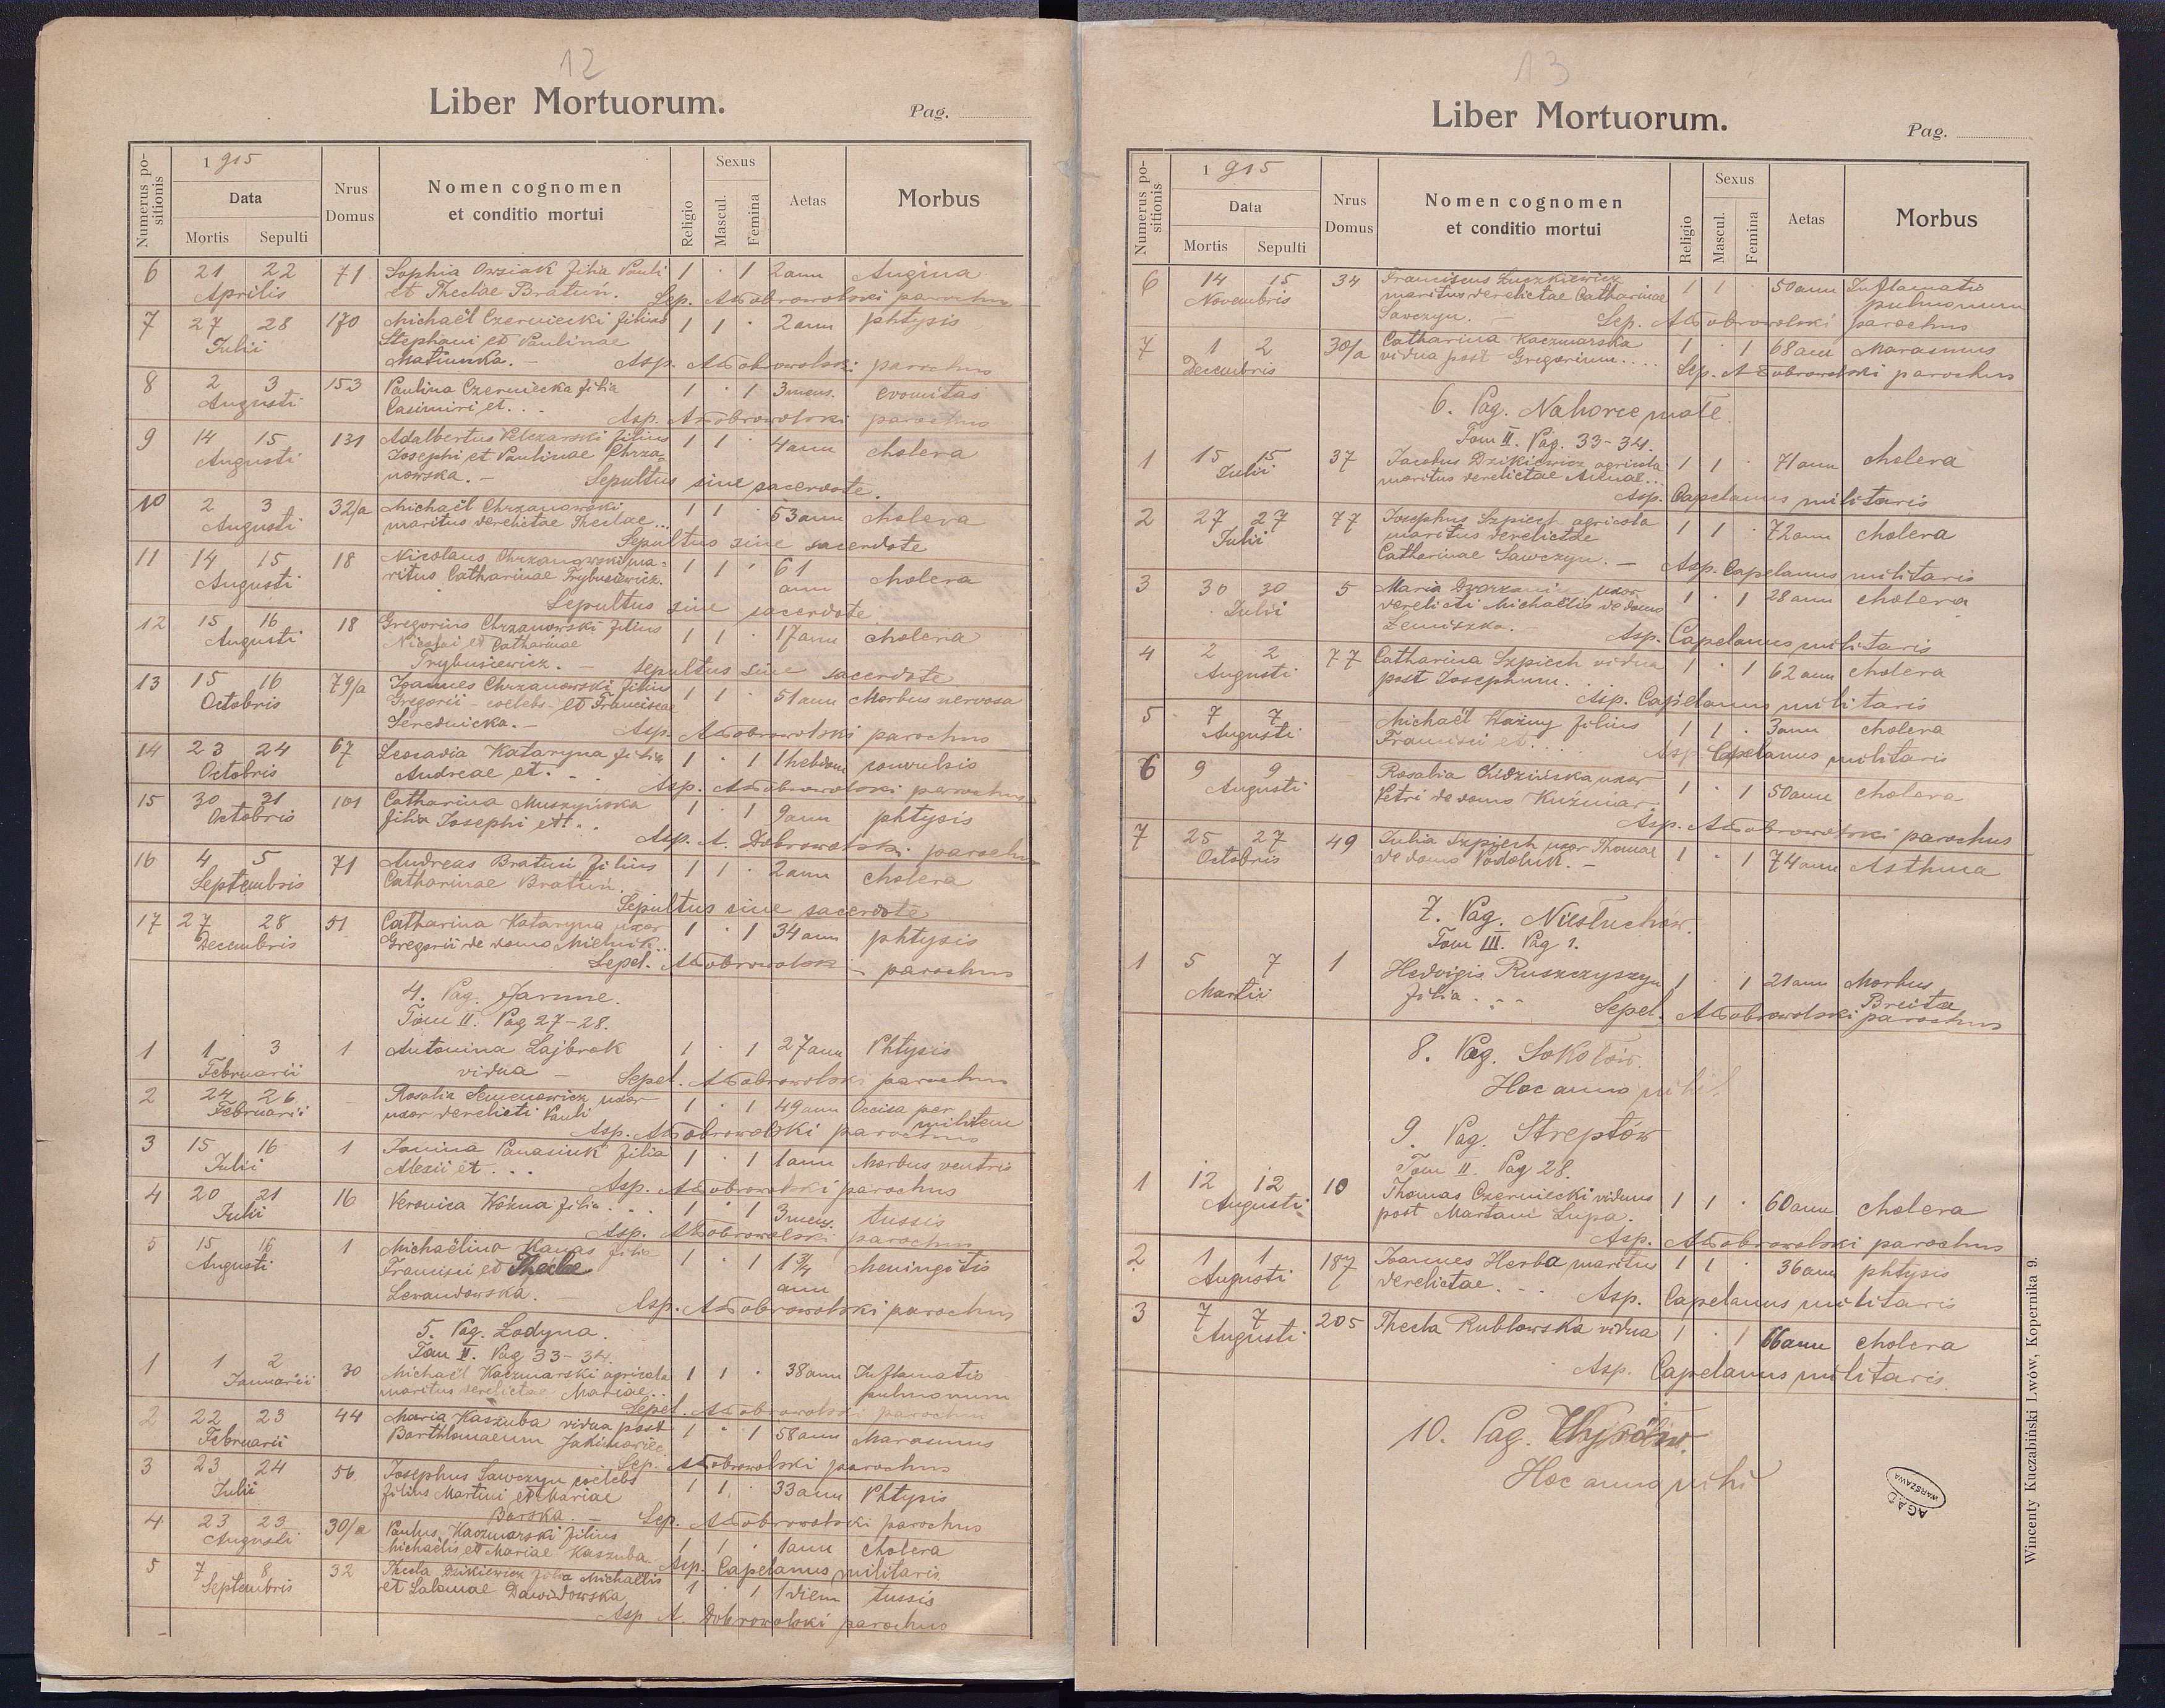 12
Liber Mortuorum.
Pag.
Numerus positionis
1915
Data
Mortis Sepulti
Nrus Domus
Nomen cognomen
et conditio mortui
Religio
Sexus
Mascul. Femina
Aetas
Morbus
6 21 22 71 Sophia Owsiak filia Pauli 1 · 1 2 ann Angina
Aprilis et Theclae Bratuń. Sep. ADobrowolski parochus
7 27 28 170 Michaël Czerniecki filius 1 1 · 2 ann phtysis
Julii Stephani et Paulinae
Matiunka. – Asp. ADobrowolski parochus
8 2 3 153 Paulina Czerniecka filia 1 · 1 3 mens. evomitas
Augusti Casimiri et. . . Asp. ADobrowolski parochus
9 14 15 131 Adalbertus Pelczarski filius 1 1 · 4 ann cholera
Augusti Josephi et Paulinae Chrza-
nowska. – Sepultus sine sacerdote.
10 2 3 32/a Michaël Chrzanowski 1 1 · 53 ann cholera
Augusti maritus derelictae Theclae...
Sepultus sine sacerdote
11 14 15 18 Nicolaus Chrzanowski ma- 1 1 · 61 ann cholera
Augusti ritus Catharinae Trybusiewicz.
Sepultus sine sacerdote.
12 15 16 18 Gregorius Chrzanowski filius 1 1 · 17 ann cholera
Augusti Nicolai et Catharinae
Trybusiewicz. – sepultus sine sacerdote
13 15 16 79/a Joannes Chrzanowski filius 1 1 · 51 ann Morbus nervosa
Octobris Gregorii – coelebs – et Franciscae
Serednicka. – Asp. ADobrowolski parochus
14 23 24 67 Leocadia Kataryna filia 1 · 1 1 hebdom convulsio
Octobris Andreae et. . . Asp. ADobrowolski parochus
15 30 31 101 Catharina Muszyńska 1 · 1 9 ann phtysis
Octobris filia Josephi et. . . Asp. A. Dobrowolski parochus
16 4 5 71 Andreas Bratuń filius 1 1 · 2 ann cholera
Septembris Catharinae Bratuń.
Sepultus sine sacerdote
17 27 28 51 Catharina Kataryna uxor 1 · 1 34 ann phtysis
Decembris Gregorii de domo Mielnik..
Sepel. ADobrowolski parochus
4. Pag. Jarmne.
Tom II. Pag 27-28.
1 1 3 1 Antonina Lajbrok 1 · 1 27 ann Phtysis
Februarii vidua – Sepel. ADobrowolski parochus
2 24 26 – Rosalia Semenowicz uxor 1 · 1 49 ann Occisa per
Februarii uxor derelicti Pauli militem
Asp. ADobrowolski parochus
3 15 16 1 Janina Panasiuk filia 1 · 1 1 ann Morbus ventris
Julii Alexii et . . . Asp. ADobrowolski parochus
4 20 21 16 Veronica Woźna filia. . . 1 · 1 3 mens. tussis
Julii Asp. ADobrowolski parochus
5 15 16 1 Michaëlina Kanas filia 1 · 1 1 3/4 ann Meningitis
Augusti Francisci et Theclae
Lewandowska. Asp. ADobrowolski parochus
5. Pag. Łodyna.
Tom II. Pag 33-34.
1 1 2 30 Michaël Kaczmarski agricola 1 1 · 38 ann Inflamatio
Januarii maritus derelictae Mariae.. pulmonum
Sepel. ADobrowolski parochus
2 22 23 44 Maria Kaszuba vidua post 1 · 1 58 ann Marasmus
Februarii Barthlomaeum Jakimowicz
Sep. ADobrowolski parochus
3 23 24 56 Josephus Sawczyn coelebs 1 1 · 33 ann Phtysis
Julii filius Martini et Mariae
Barska. – Sep. ADobrowolski parochus
4 23 23 30/a Paulus Kaczmarski filius 1 1 · 1 ann cholera
Augusti Michaëlis et Mariae Kaszuba.
Asp. Capelanus militaris
5 7 8 32 Thecla Dzikiewicz filia Michaëlis 1 · 1 1 diem tussis
Septembris et Salomae Dawidowska
Asp A. Dobrowolski parochus
13
Liber Mortuorum.
Pag.
Numerus positionis
1915
Data
Mortis Sepulti
Nrus Domus
Nomen cognomen
et conditio mortui
Religio
Sexus
Mascul. Femina
Aetas
Morbus
6 14 15 34 Franciscus Łuczkiewicz 1 1 50 ann Inflamatio
Novembris maritus derelictae Catharinae pulmonum
Sawczyn. – Sep. ADobrowolski parochus
7 1 2 30/a Catharina Kaczmarska 1 · 1 68 ann Marasmus
Decembris vidua post Gregorium....
Sep. ADobrowolski parochus
6. Pag. Nahorce małe.
Tom II. Pag. 33-34.
1 15 15 37 Jacobus Dzikiewicz agricola 1 1 · 71 ann cholera
Julii maritus derelictae Annae...
Asp. Capelanus militaris
2 27 27 77 Josephus Szpiech agricola 1 1 · 72 ann cholera
Julii maritus derelictae
Catharinae Sawczyn. – Asp. Capelanus militaris
3 30 30 5 Maria uxor 1 · 1 28 ann cholera
Julii derelicti Michaëlis de domo
Zemiszka. – Asp. Capelanus militaris
4 2 2 77 Catharina Szpiech vidua 1 · 1 62 ann cholera
Augusti post Josephum. . . Asp. Capelanus militaris
5 7 7 – Michaël Woźny filius 1 1 · 3 ann cholera
Augusti Francisci et. . . Asp. Capelanus militaris
6 9 9 Rosalia Chudzińska uxor 1 · 1 50 ann cholera
Augusti Petri de domo Kuźmiar.
Asp. ADobrowolski parochus
7 25 27 49 Julia Szpiech uxor Thomae 1 · 1 74 ann Asthma
Octobris de domo Podoluk. –
7. Pag. Niesłuchów.
Tom III. Pag 1.
1 5 7 1 Hedvigis Ruszczyszyn 1 · 1 21 ann Morbus
Martii filia. . . Breita
Sepel. ADobrowolski parochus
8. Pag. Sokołów.
Hoc anno nihil.
9. Pag. Streptów
Tom II. Pag 28.
1 12 12 10 Thomas Czerniecki viduus 1 1 · 60 ann cholera
Augusti post Martam Lupa.
Asp. ADobrowolski parochus
2 1 1 187 Joannes Herba maritus 1 1 · 36 ann phtysis
Augusti derelictae. . . Asp. Capelanus militaris
3 7 7 205 Thecla Rublowska vidua 1 · 1 66 ann cholera
Augusti
Asp. Capelanus militaris.
10. Pag.
Hoc anno nihil
A.G.A.D.
WARSZAWA
Wincenty Kuczabiński Lwów, Kopernika 9.